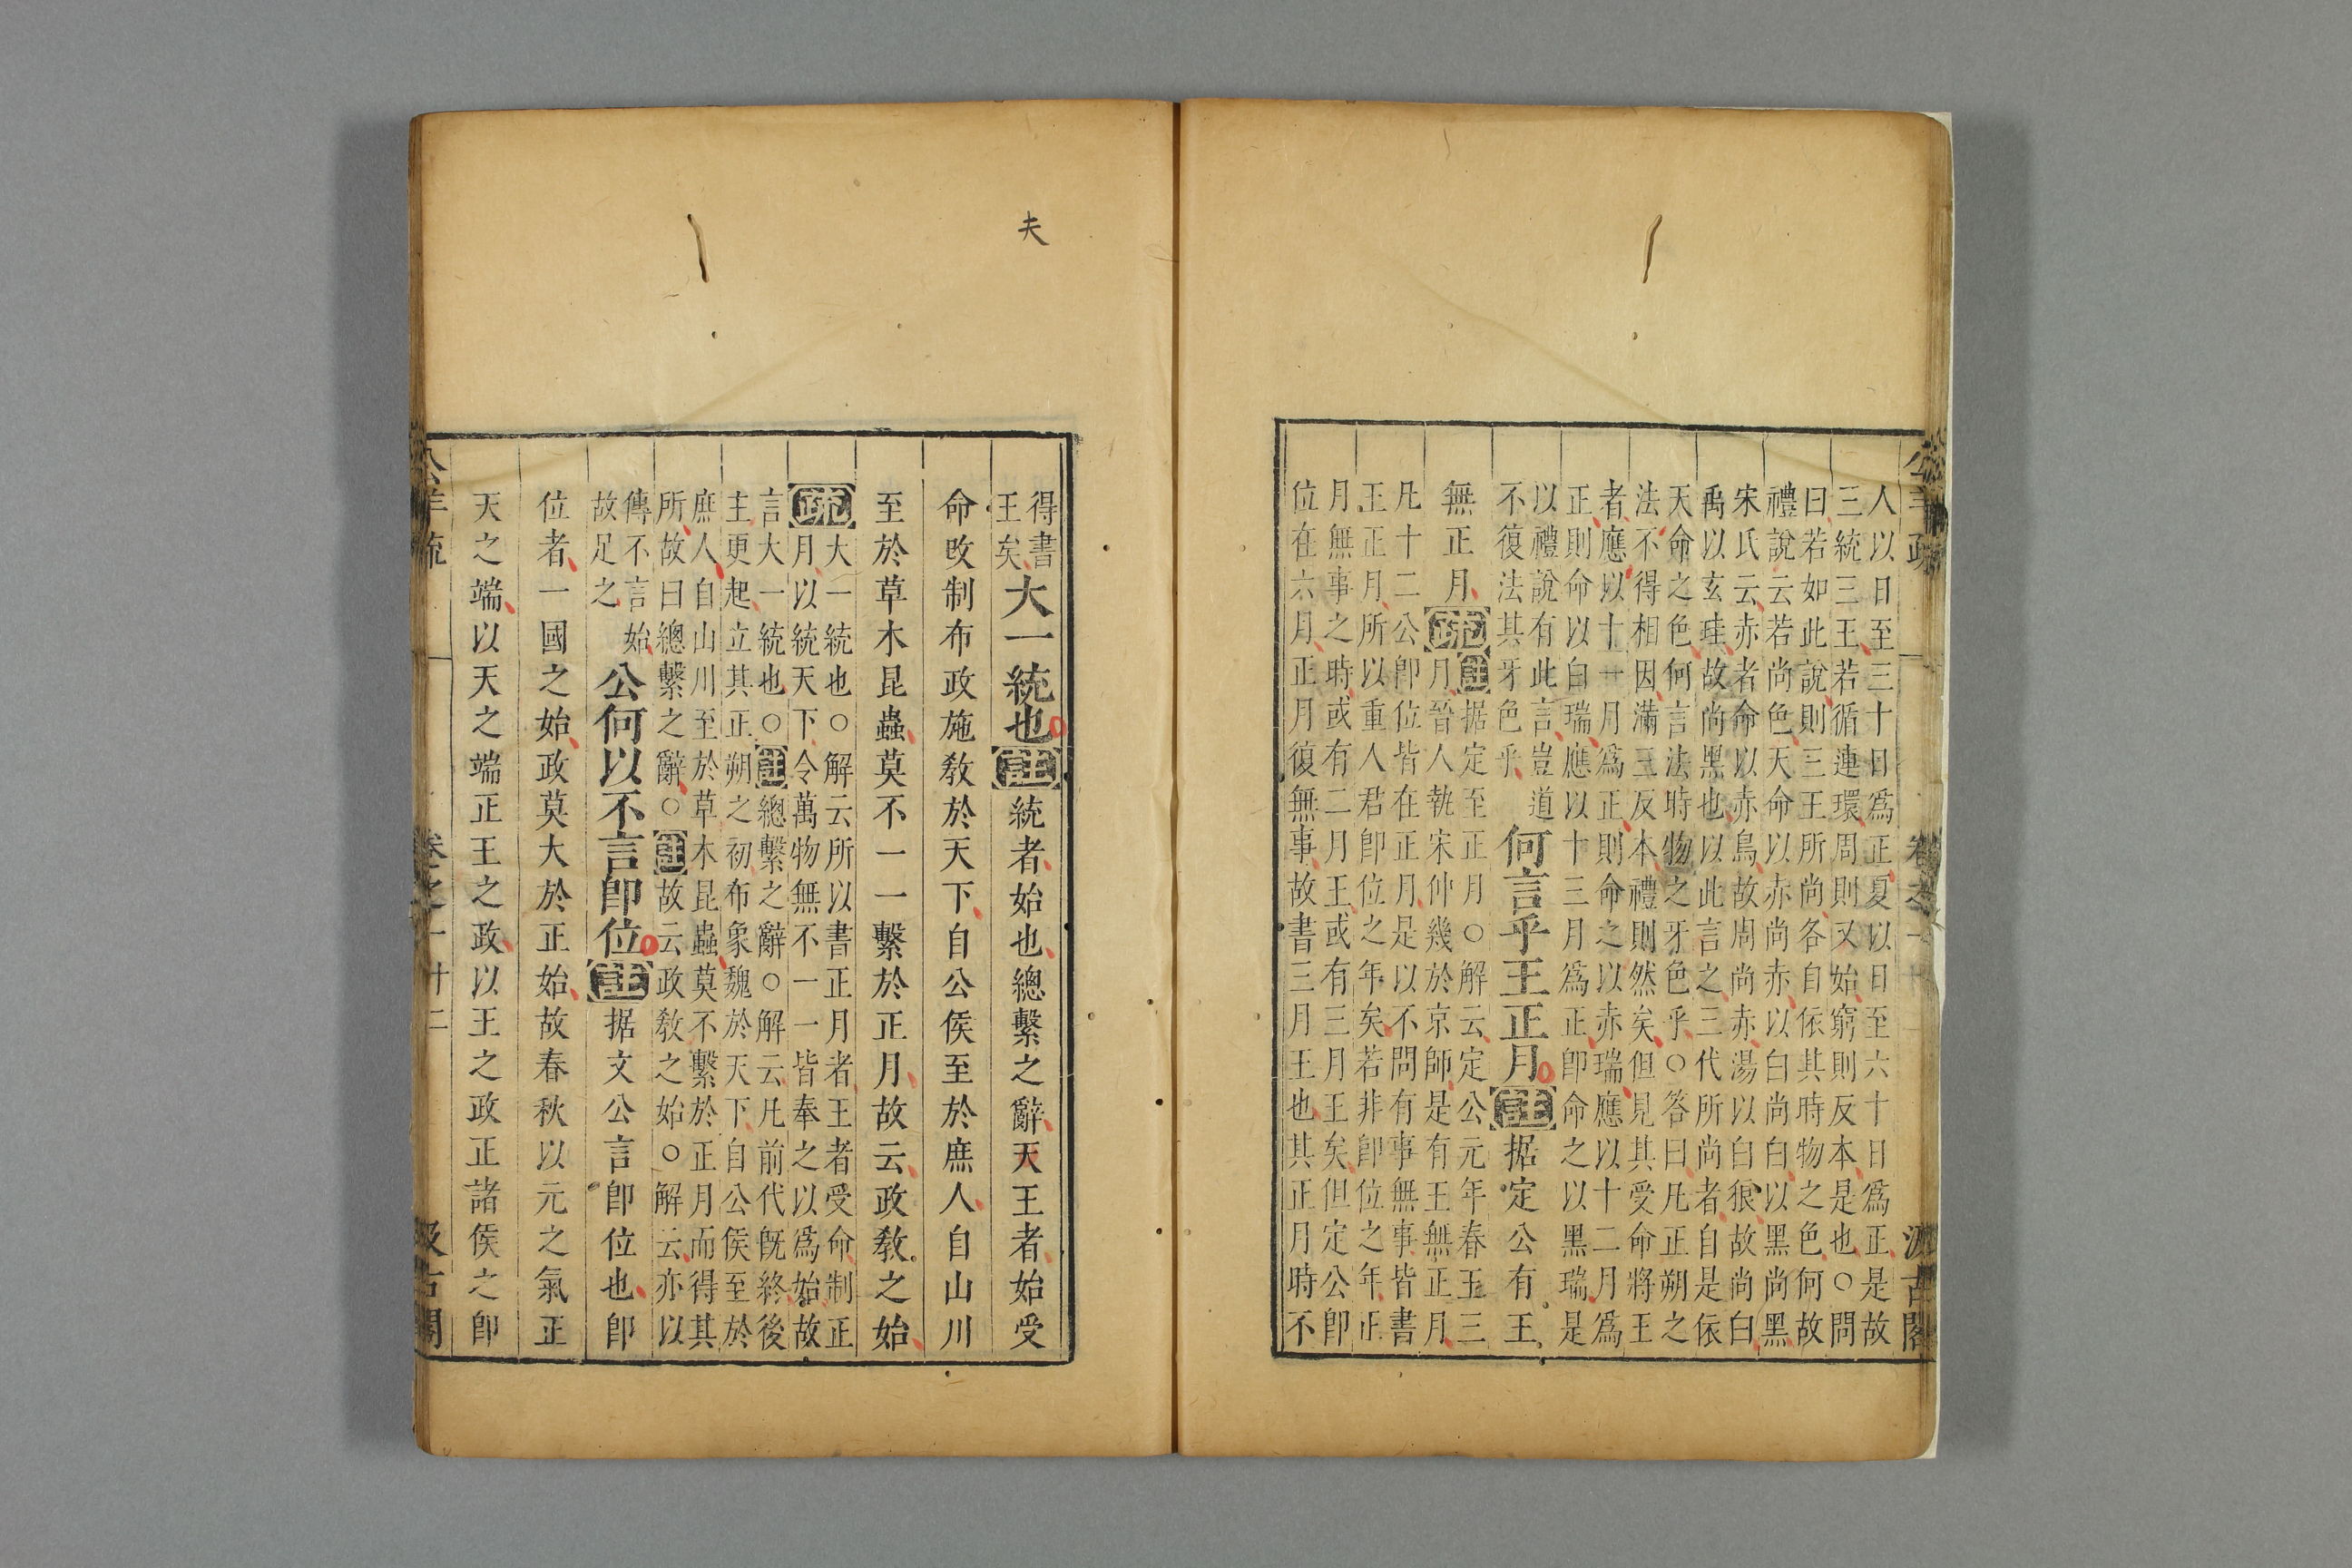 公羊疏 卷之一 汲古閣
人以日至三十日爲正夏以日至六十日爲正是故
三統三王若循連環周則又始窮則反本是也○問
曰若如此說則三王所尚各自依其時物之色何故
禮說云若尚色天命以赤尚赤以白尚白以黑尚黑
宋氏云赤者命以赤鳥故周尚赤湯以白狼故尚白
禹以玄珪故尚黑也以此言之三代所尚者自是依
天命之色何言法時物之牙色乎○答曰凡正朔之
法不得相因滿三反本禮則然矣但見其受命將王
者應以十一月爲正則命之以赤瑞應以十二月爲
正則命以白瑞應以十三月爲正卽命之以黑瑞是
以禮說有此言豈道
不復法其牙色乎
何言乎王正月註据定公有王
無正月疏
註据定至正月○解云定公元年春王三
月晉人執宋仲幾於京師是有王無正月
凡十二公卽位皆在正月是以不問有事無事皆書
王正月所以重人君卽位之年矣若非卽位之年正
月無事之時或有二月王或有三月王矣但定公卽
位在六月正月復無事故書三月王也其正月時不
夫
得書
王矣
大一統也註統者始也總繫之辭天王者始受
命改制布政施敎於天下自公侯至於庶人自山川
至於草木昆蟲莫不一一繫於正月故云政敎之始
疏大一統也○解云所以書正月者王者受命制正
月以統天下令萬物無不一一皆奉之以爲始故
言大一統也○註總繫之辭○解云凡前代旣終後
主更起立其正朔之初布象魏於天下自公侯至於
庶人自山川至於草木昆蟲莫不繫於正月而得其
所故曰總繫之辭○註故云政敎之始○解云亦以
傳不言始
故足之
公何以不言卽位註据文公言卽位也卽
位者一國之始政莫大於正始故春秋以元之氣正
天之端以天之端正王之政以王之政正諸侯之卽
公羊疏 卷之一 十二 汲古閣